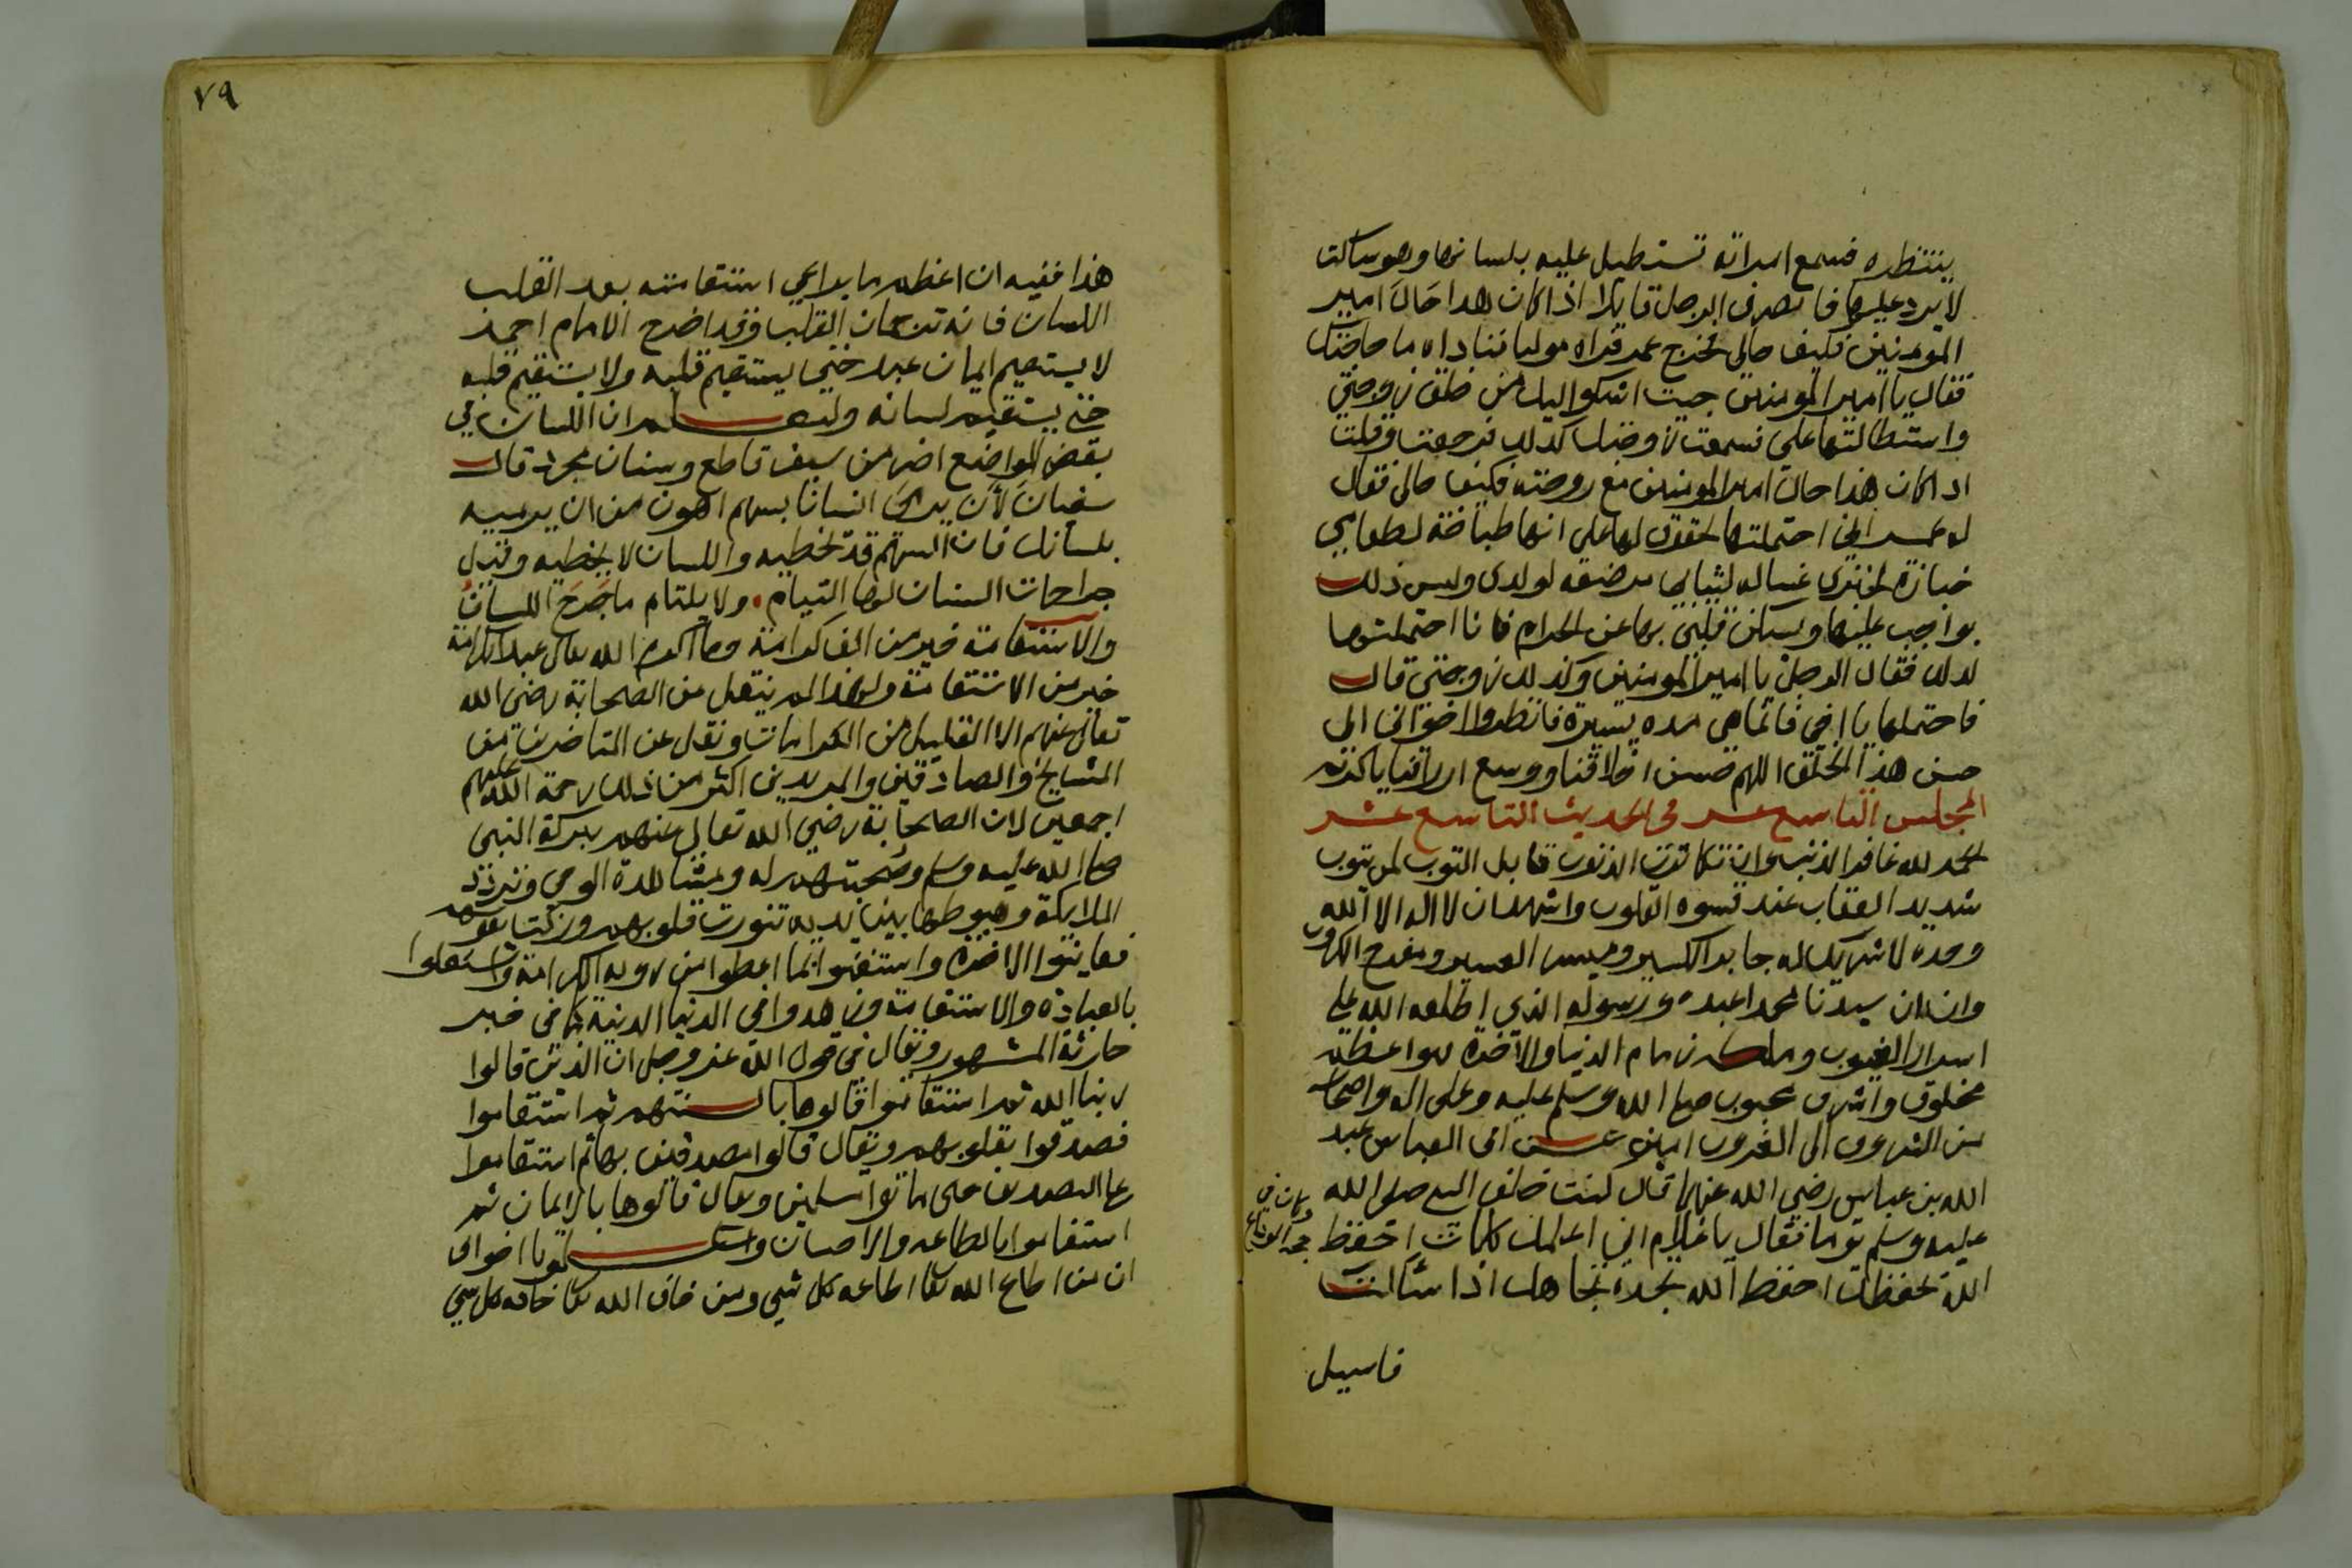 ينتظره فسمع امراته تستطيل عليه بلسانها وهو ساكت
لا يرد عليها فانصرف الرجل قايلا اذا كان هذا حال امير
المومنين فكيف حالي فخرج عمر فراه موليا فناداه ما حاجتك
فقال يا امير المومنين جيت اشكو اليك من خلق زوجتي
واستطالتها علي فسمعت زوجتك كذلك فرجعت وقلت
اذا كان هذا حال امير المومنين مع زوجته فكيف حالي فقال
له عمر يا اخي احتملتها لحقوق لها علي انها طباخة لطعامي
خبازة لخبزي غساله لثيابي مرضعه لولدي وليس ذلك
بواجب عليها ويسكن قلبي بها عن الحرام فانا احتملتها
لذلك فقال الرجل يا امير المومنين وكذلك زوجتي قال
فاحتملها يا اخي فانما هي مده يسيرة فانظروا اخواني الى
حسن هذا الخلق اللهم حسن اخلاقنا ووسع ارزاقنا يا كريم
المجلس التاسع عشر في الحديث التاسع عشر
الحمد لله غافر الذنب وان تكاثرت الذنوب قابل التوب لمن يتوب
شديد العقاب عند قسوه القلوب واشهد ان لا اله الا الله
وحده لا شريك له جابر الكسير وميسر العسير ومفرج الكروب
وان سيدنا محمدا عبده ورسوله الذي اطلعه الله على
اسرار الغيوب وملكه زمام الدنيا والاخرة فهو اعظم
مخلوق واشرف محبوب صلى الله وسلم عليه وعلى اله واصحابه
من الشروق الى الغروب امين عن ابي العباس عبد
الله بن عباس رضي الله عنهما قال كنت خلف النبي صلى الله
عليه وسلم يوما فقال يا غلام اني اعلمك كلمات احفظ
الله يحفظك احفظ الله تجده تجاهك اذا سالت
فاسيل
٧٩
هذا ففيه ان اعظم ما يراعي استقامته بعد القلب
اللسان فانه ترجمان القلب وقد اخرج الامام احمد
لا يستقيم ايمان عبد حتى يستقيم قلبه ولا يستقيم قلبه
حتى يستقيم لسانه وليعلم ان اللسان في
بعض المواضع اضر من سيف قاطع وسنان مجرد قال
سفيان لأن يرمى انسانا بسهم اهون من ان يرميه
بلسانك فان السهم قد تخطيه واللسان لا يخطيه وقيل
جراحات السنان لها التيام ولا يلتام ما جرح اللسان
والاستقامة خير من الف كرامة وما اكرم الله تعالى عبدا بكرامة
خير من الاستقامة ولهذا لم ينقل عن الصحابة رضي الله
تعالى عنهم الا القليل من الكرامات ونقل عن المتاخرين من
المشايخ والصادقين والمريدين اكثر من ذلك رحمة الله عليهم
اجمعين لان الصحابة رضي الله تعالى عنهم ببركة النبي
صلى الله عليه وسلم وصحبتهم له ومشاهدة الوحي وتردد
الملايكة وهبوطها بين يديه تنورت قلوبهم وزكت نفوسهم
فعاينوا الاخرة واستغنوا بما اعطوا من روية الكرامة واشتغلوا
بالعبادة والاستقامة وزهدوا في الدنيا الدنية كما في خبر
حارثة المشهور ويقال في قول الله عز وجل ان الذين قالوا
ربنا الله ثم استقاموا قالوها بالسنتهم ثم استقاموا
فصدقوا بقلوبهم ويقال قالوا مصدقين بها ثم استقاموا
على التصديق حتى ماتوا مسلمين ويقال قالوها بالايمان ثم
استقاموا بالطاعه والاحسان يا اخواني
ان من اطاع الله تعا اطاعه كل شي ومن خاف الله تعا خافه كل شي